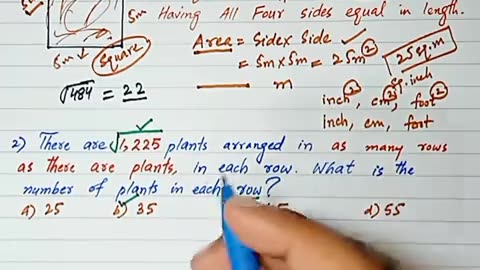 5m Having All Four sides equal in length.
Area = Side x Side ✓
5m Square = 5m x 5m = 25m² 25 sq.m
√484 = 22 m sq.inch
inch², cm², foot²
inch, cm, foot
2) There are √1,225 plants arranged in as many rows
as there are plants, in each row. What is the
number of plants in each row?
a) 25 b) 35 d) 55